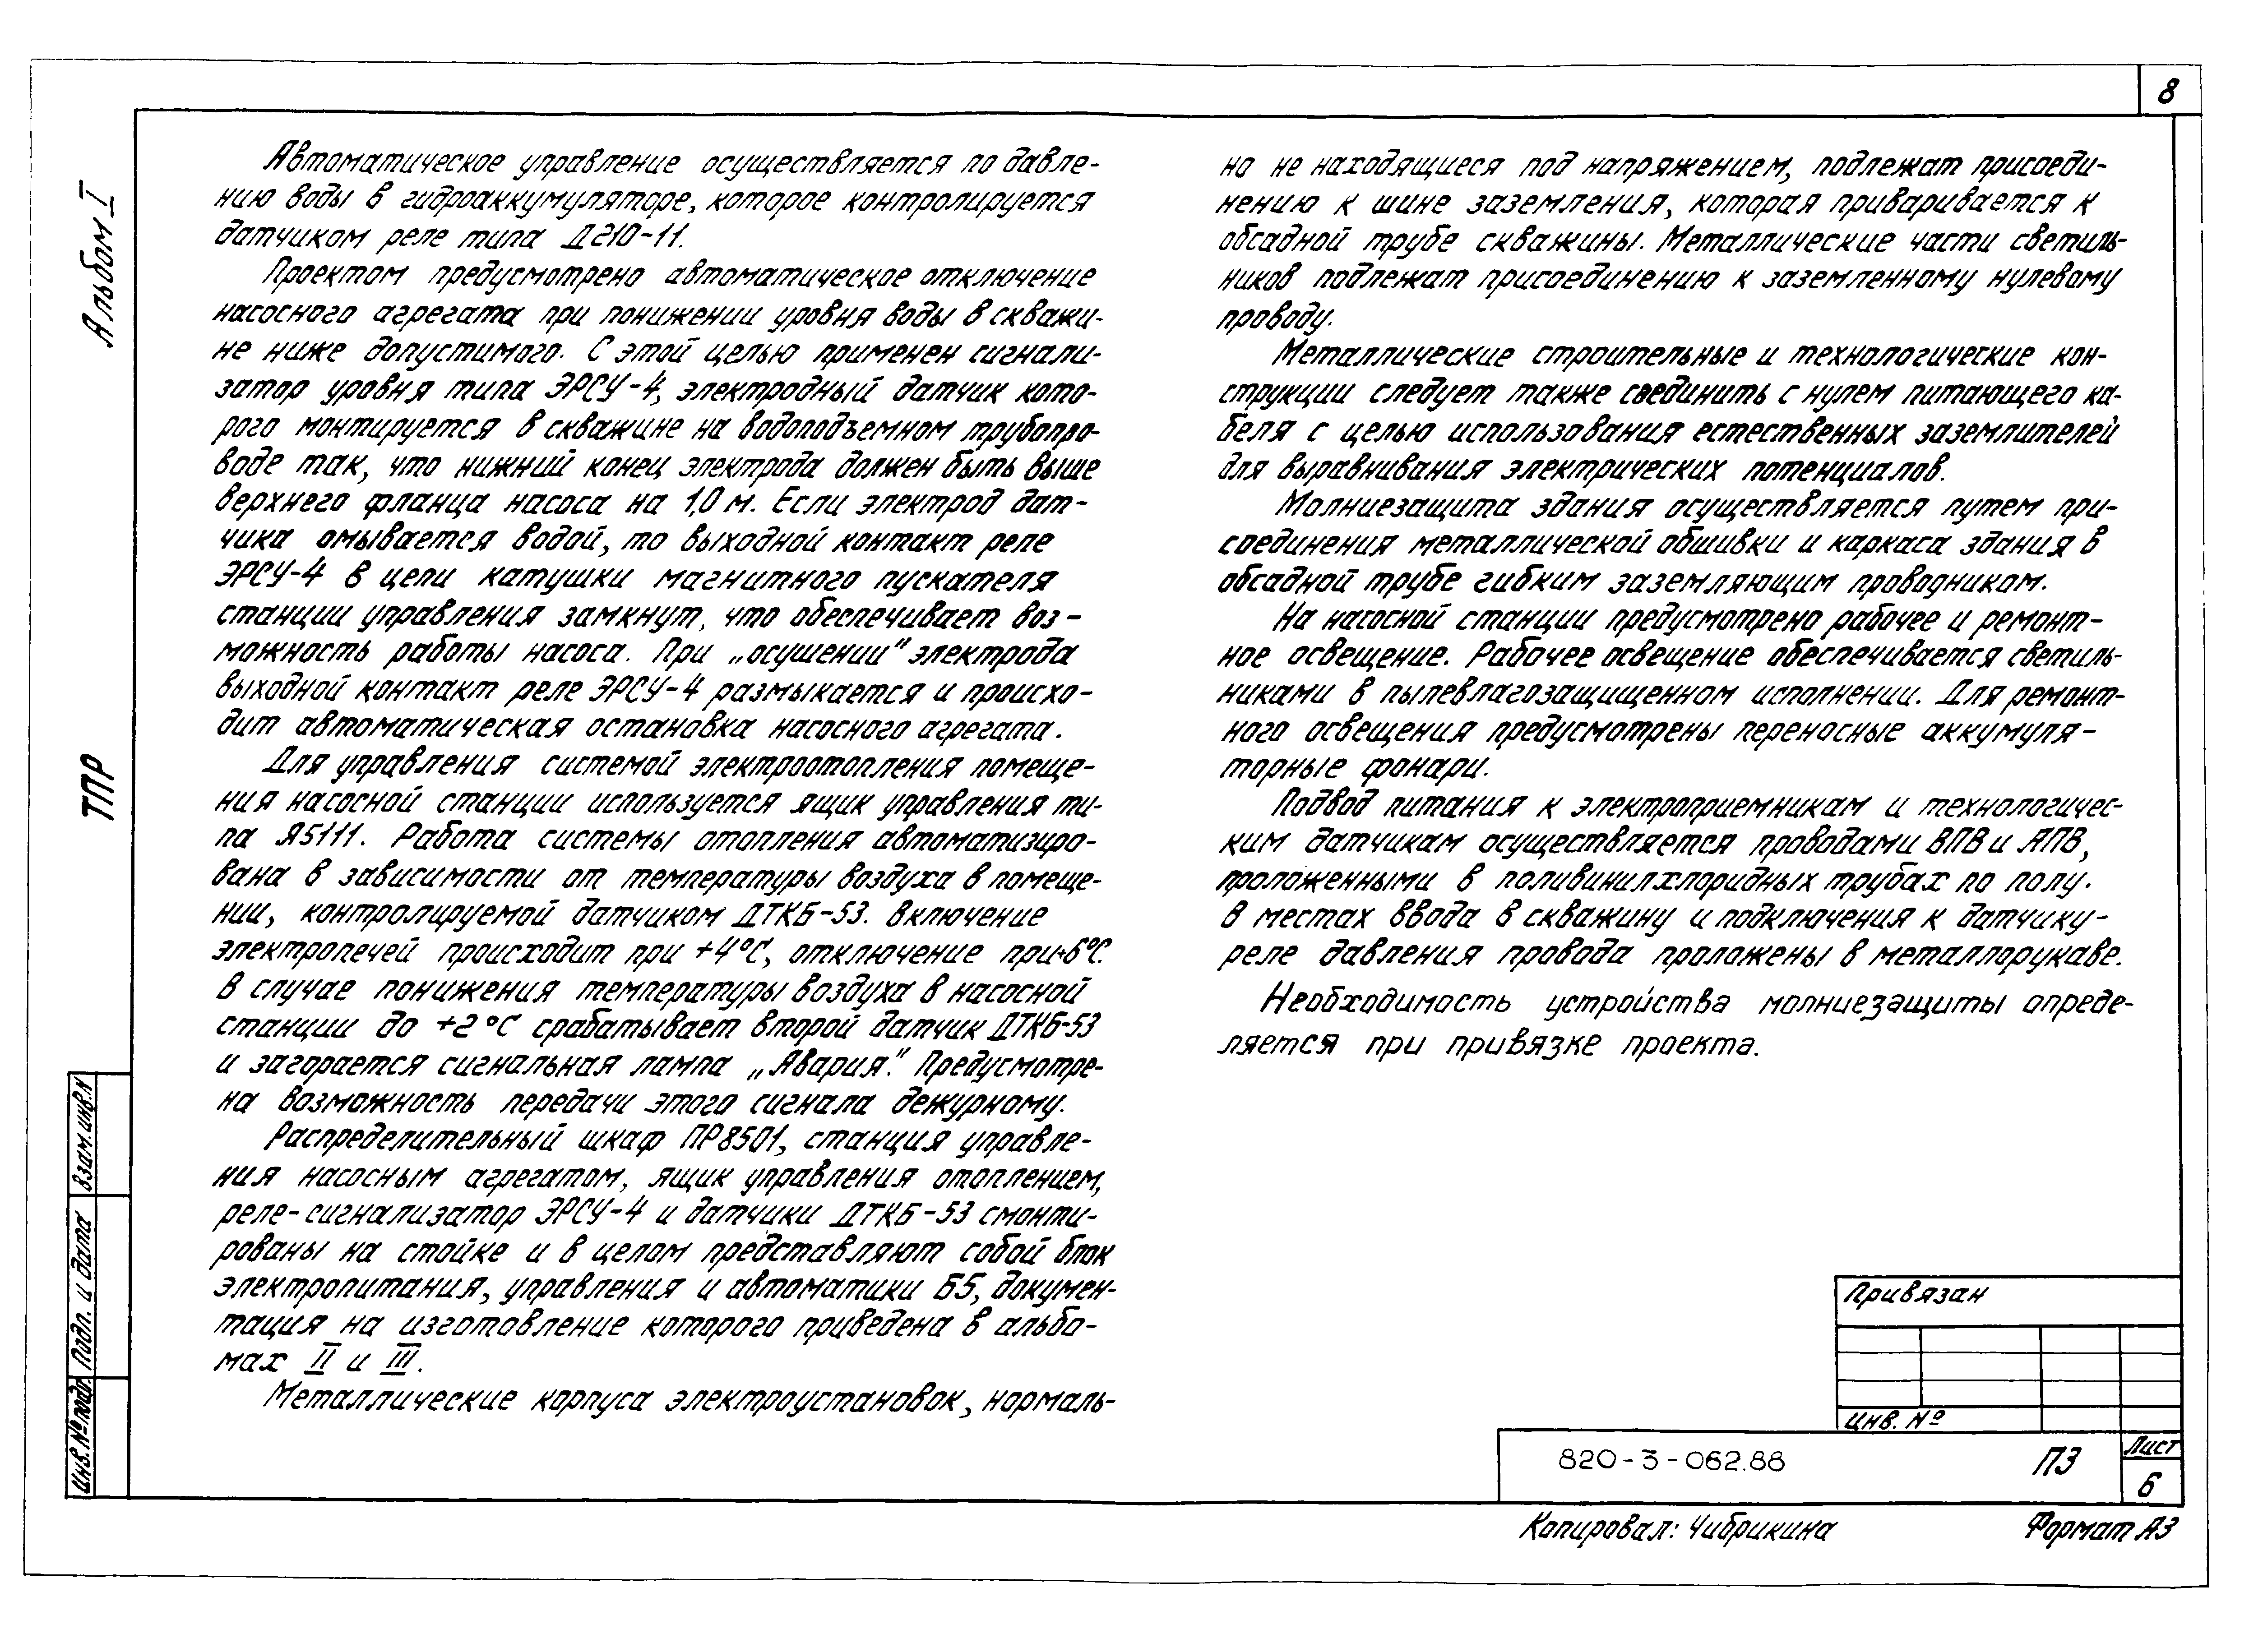 8
Альбом I
ТПР
Автоматическое управление осуществляется по давле-
нию воды в гидроаккумуляторе, которое контролируется
датчиком реле типа Д210-11.
Проектом предусмотрено автоматическое отключение
насосного агрегата при понижении уровня воды в скважи-
не ниже допустимого. С этой целью применен сигнали-
затор уровня типа ЭРСУ-4, электродный датчик кото-
рого монтируется в скважине на водоподъемном трубопро-
воде так, что нижний конец электрода должен быть выше
верхнего фланца насоса на 1,0 м. Если электрод дат-
чика омывается водой, то выходной контакт реле
ЭРСУ-4 в цепи катушки магнитного пускателя
станции управления замкнут, что обеспечивает воз-
можность работы насоса. При „осушении" электрода
выходной контакт реле ЭРСУ-4 размыкается и происхо-
дит автоматическая остановка насосного агрегата.
Для управления системой электроотопления помеще-
ния насосной станции используется ящик управления ти-
па Я5111. Работа системы отопления автоматизиро-
вана в зависимости от температуры воздуха в помеще-
нии, контролируемой датчиком ДТКБ-53. Включение
электропечей происходит при +4°С, отключение при+6°С.
В случае понижения температуры воздуха в насосной
станции до +2°С срабатывает второй датчик ДТКБ-53
и загорается сигнальная лампа „Авария". Предусмотре-
на возможность передачи этого сигнала дежурному.
Распределительный шкаф ПР8501, станция управле-
ния насосным агрегатом, ящик управления отоплением,
реле-сигнализатор ЭРСУ-4 и датчики ДТКБ-53 смонти-
рованы на стойке и в целом представляют собой блок
электропитания, управления и автоматики Б5, докумен-
тация на изготовление которого приведена в альбо-
мах II и III.
Металлические корпуса электроустановок, нормаль-
но не находящиеся под напряжением, подлежат присоеди-
нению к шине заземления, которая приваривается к
обсадной трубе скважины. Металлические части светиль-
ников подлежат присоединению к заземленному нулевому
проводу.
Металлические строительные и технологические кон-
струкции следует также соединить с нулем питающего ка-
беля с целью использования естественных заземлителей
для выравнивания электрических потенциалов.
Молниезащита здания осуществляется путем при-
соединения металлической обшивки и каркаса здания в
обсадной трубе гибким заземляющим проводником.
На насосной станции предусмотрено рабочее и ремонт-
ное освещение. Рабочее освещение обеспечивается светиль-
никами в пылевлагозащищенном исполнении. Для ремонт-
ного освещения предусмотрены переносные аккумуля-
торные фонари.
Подвод питания к электроприемникам и технологичес-
ким датчикам осуществляется проводами ВПВ и АПВ,
проложенными в поливинилхлоридных трубах по полу.
В местах ввода в скважину и подключения к датчику-
реле давления провода проложены в металлорукаве.
Необходимость устройства молниезащиты опреде-
ляется при привязке проекта.
Взам. инв. N
Подп. и дата
Инв. № подл.
Привязан
Инв. №
820-3-062.88
ПЗ
Лист
6
Копировал: Чибрикина
Формат А3